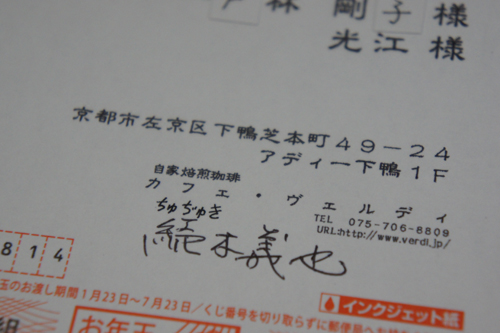 林 剛 子 様
光 江 様
京都市左京区下鴨芝本町49-24
アディー下鴨1F
自家焙煎珈琲
カフェ・ヴェルディ
TEL 075-706-8809
URL:http://www.verdi.jp/
ちゅぢゅき
続木義也
814
玉のお渡し期間1月23日〜7月23日/くじ番号を切り取らずに郵便局
インクジェット紙
組
お年玉